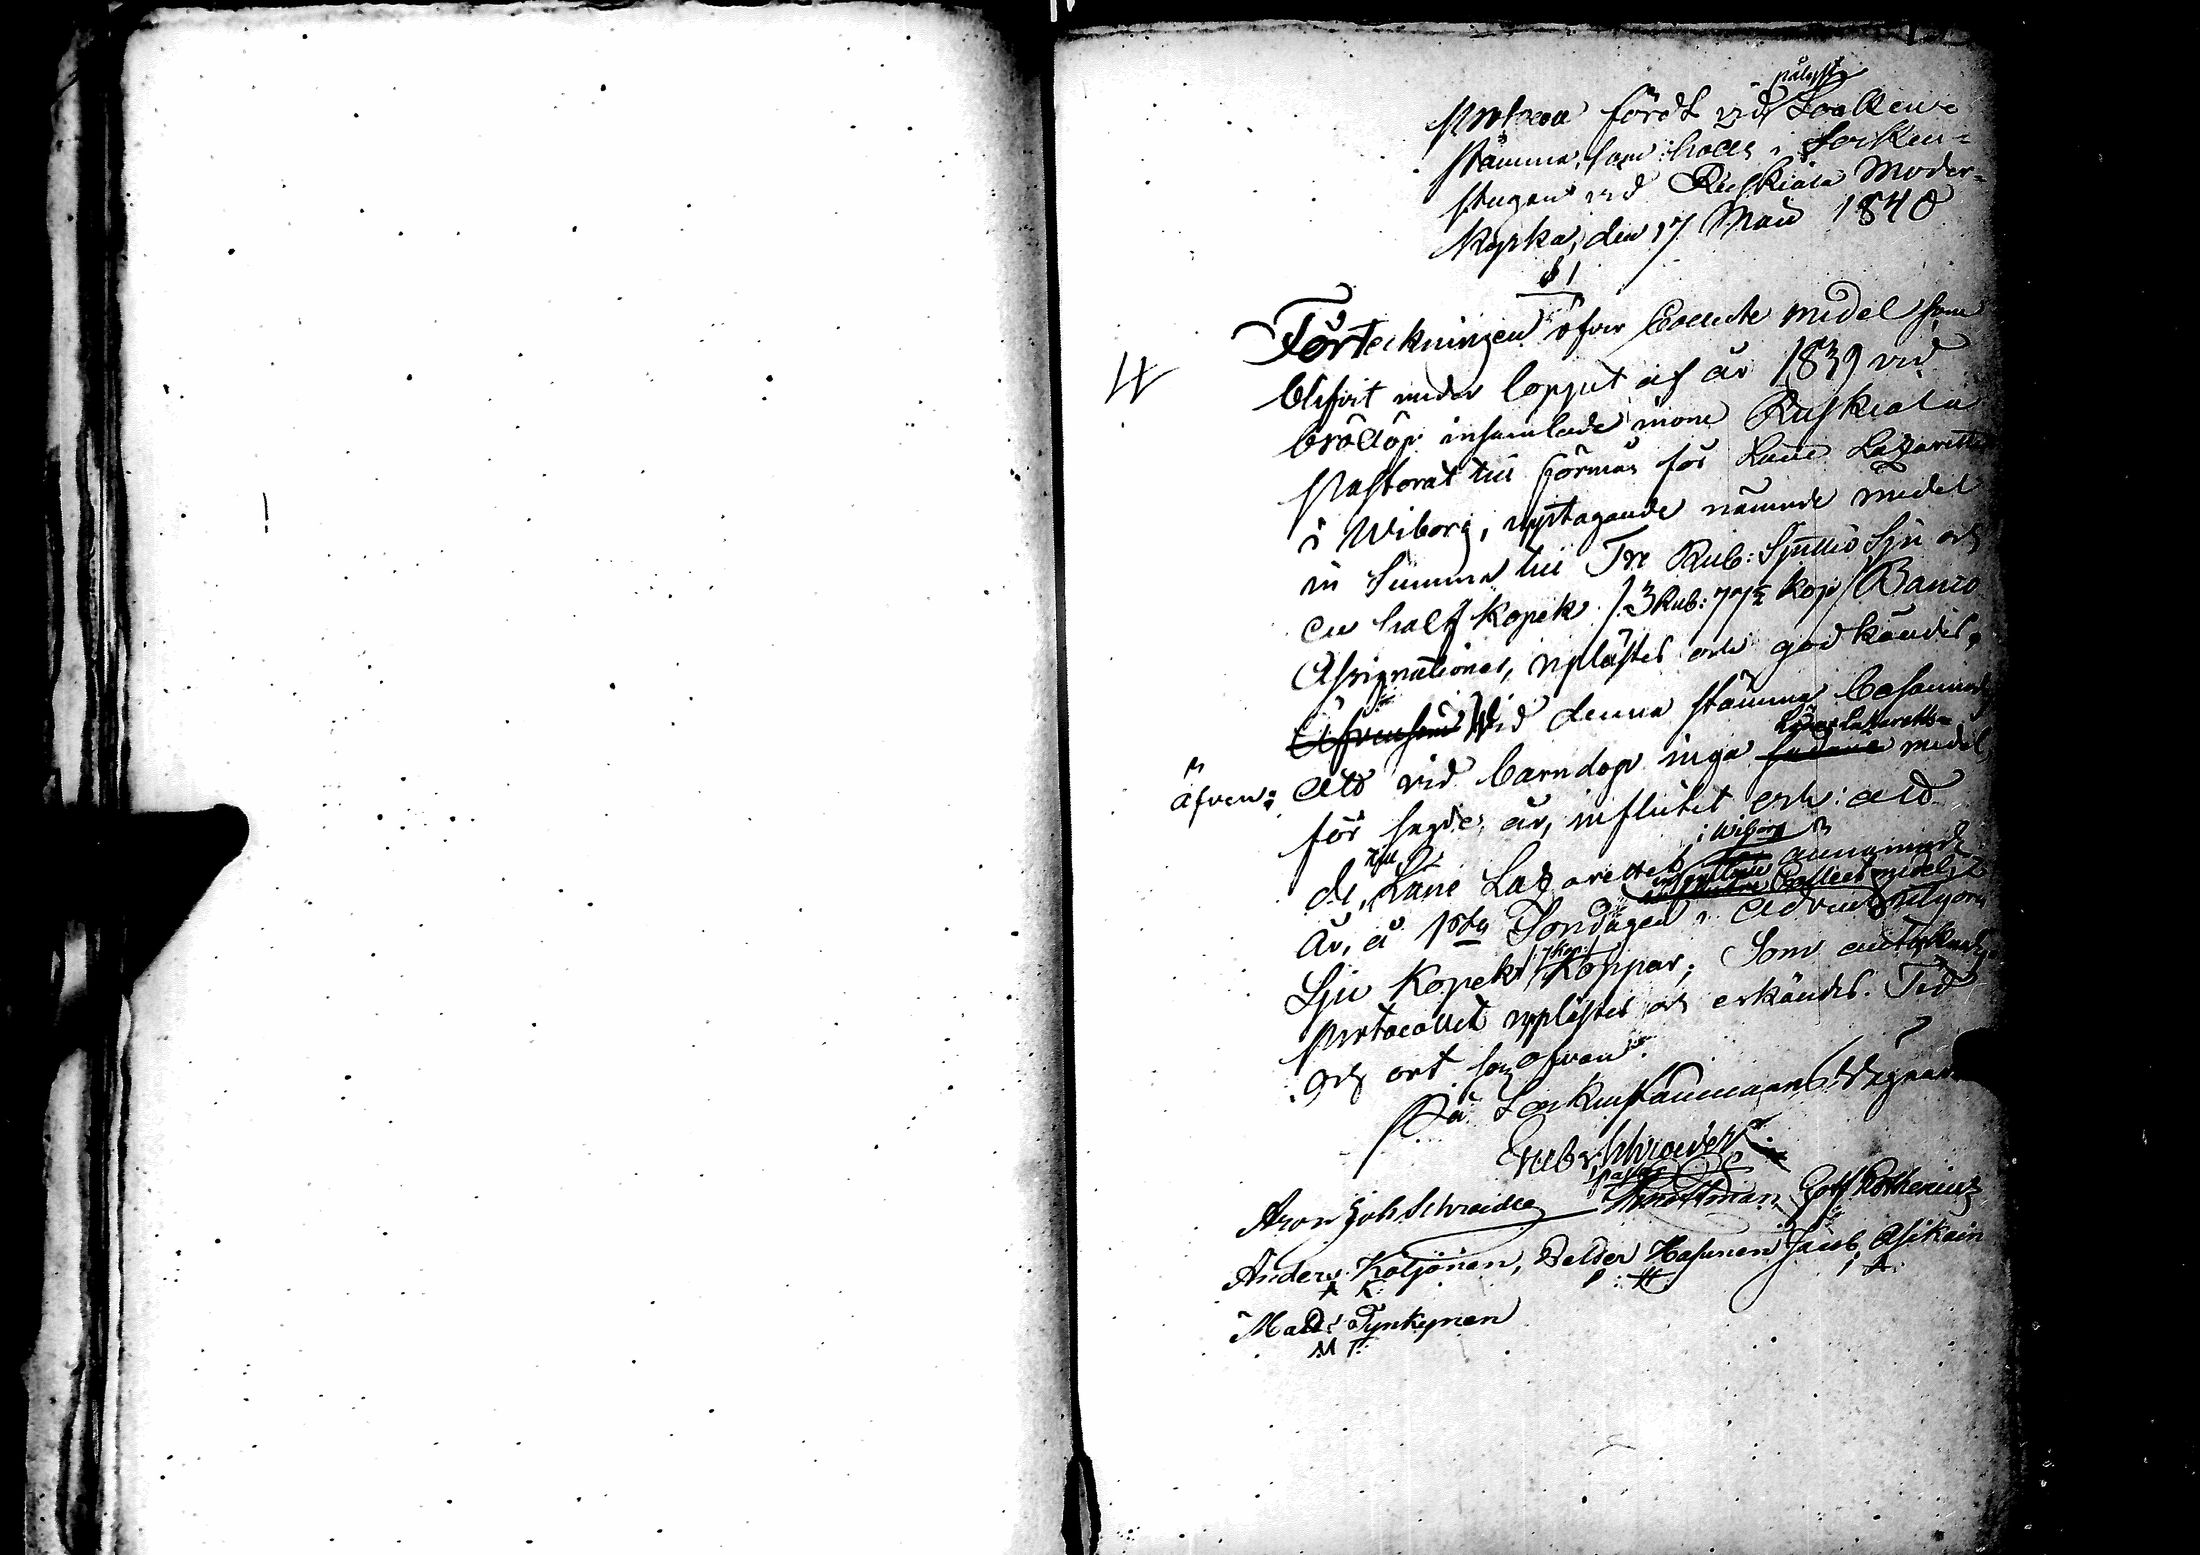 pålyst
Protocoll fördt vid Socken-
stämma, som hölls i Socken-
stugan vid Ruskiala Moder-
kyrka, den 17 Maii 1840
§ 1
Förteckningen öfver Collecte medel som
blifvit under loppet af år 1839 vid
bröllop insamlade inom Ruskiala
Pastorat till förmån för Läne Lazarettet
i Wiborg, upptagande nämnde medel
in Summa till Tre Rub: Sjuttio Sju och
en half Kopek /3 Rub: 77½ Kop/ Banco
Assignationer, uplästes och godkändes,
Äfvensom Vid denna stämma
Läne Lazaretts-
äfven: att vid barndop inga sådane medel
för sagde år, influtit och att
i Wiborg
de till Läne Lazarettet
influtne Collect medel
År, å 1sta Söndagen i Advent utgöra
/7 Kop:/
Sju Kopek Koppar; Som antecknades
Protocollet uplästes och erkändes. Tid
och ort som ofvan.
På Sockenstämmans Vägnar
Aron Joh Schroeder Gott Rothenius
Anders Koljonen, Peldor Hasunen Jacob Asikain
A K P: H: I A:
Matts Tynkynen
M T: